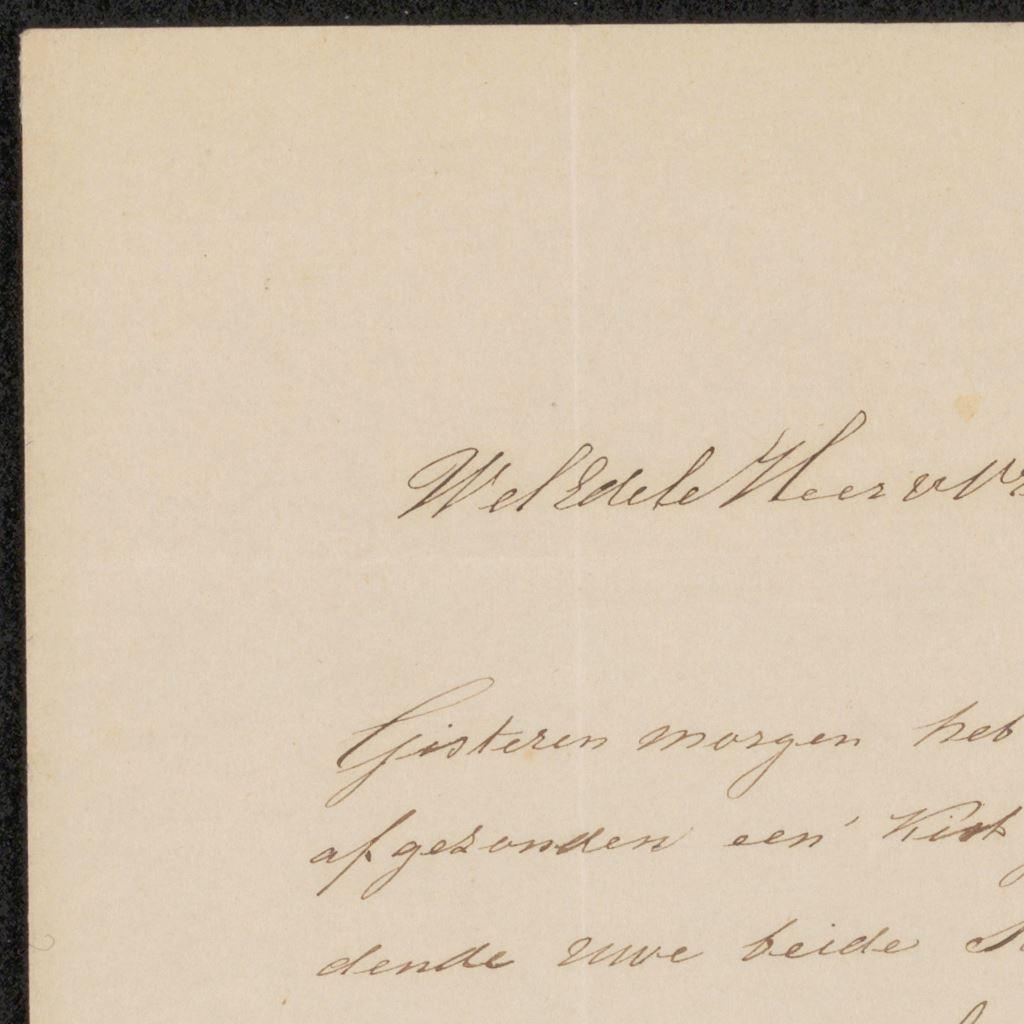 WelEdele Heer v
Gisteren morgen heb
afgezonden een Kist
dende uwe beide